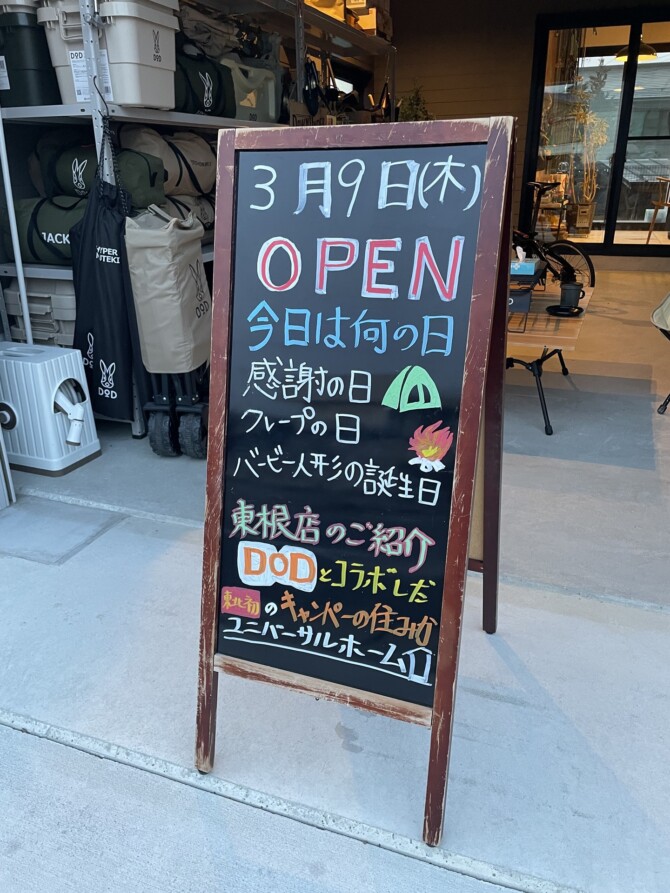 3月9日(木)
OPEN
今日は何の日
感謝の日
クレープの日
バービー人形の誕生日
東根店のご紹介
DODとコラボした
東北初のキャンパーの住みか
ユニバーサルホーム
DOD
DOD
JACK
DOD
DOD